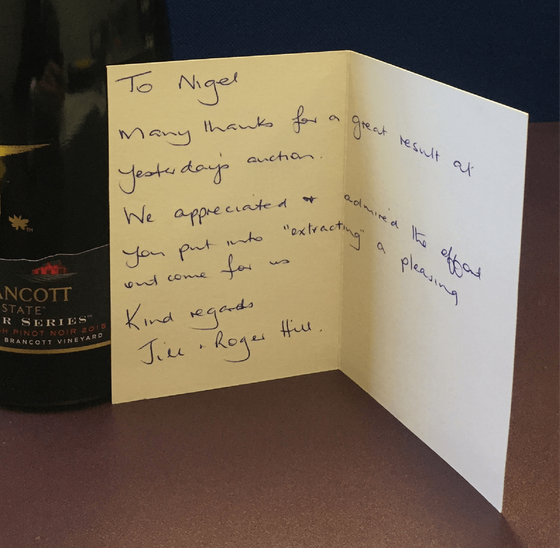 To Nigel
Many thanks for a great result at
yesterday's auction.
We appreciated + admired the effort
you put into "extracting" a pleasing
outcome for us
Kind regards
Jill + Roger Hill.
ANCOTT
ESTATE
R SERIES™
H PINOT NOIR 2015
BRANCOTT VINEYARD
TM